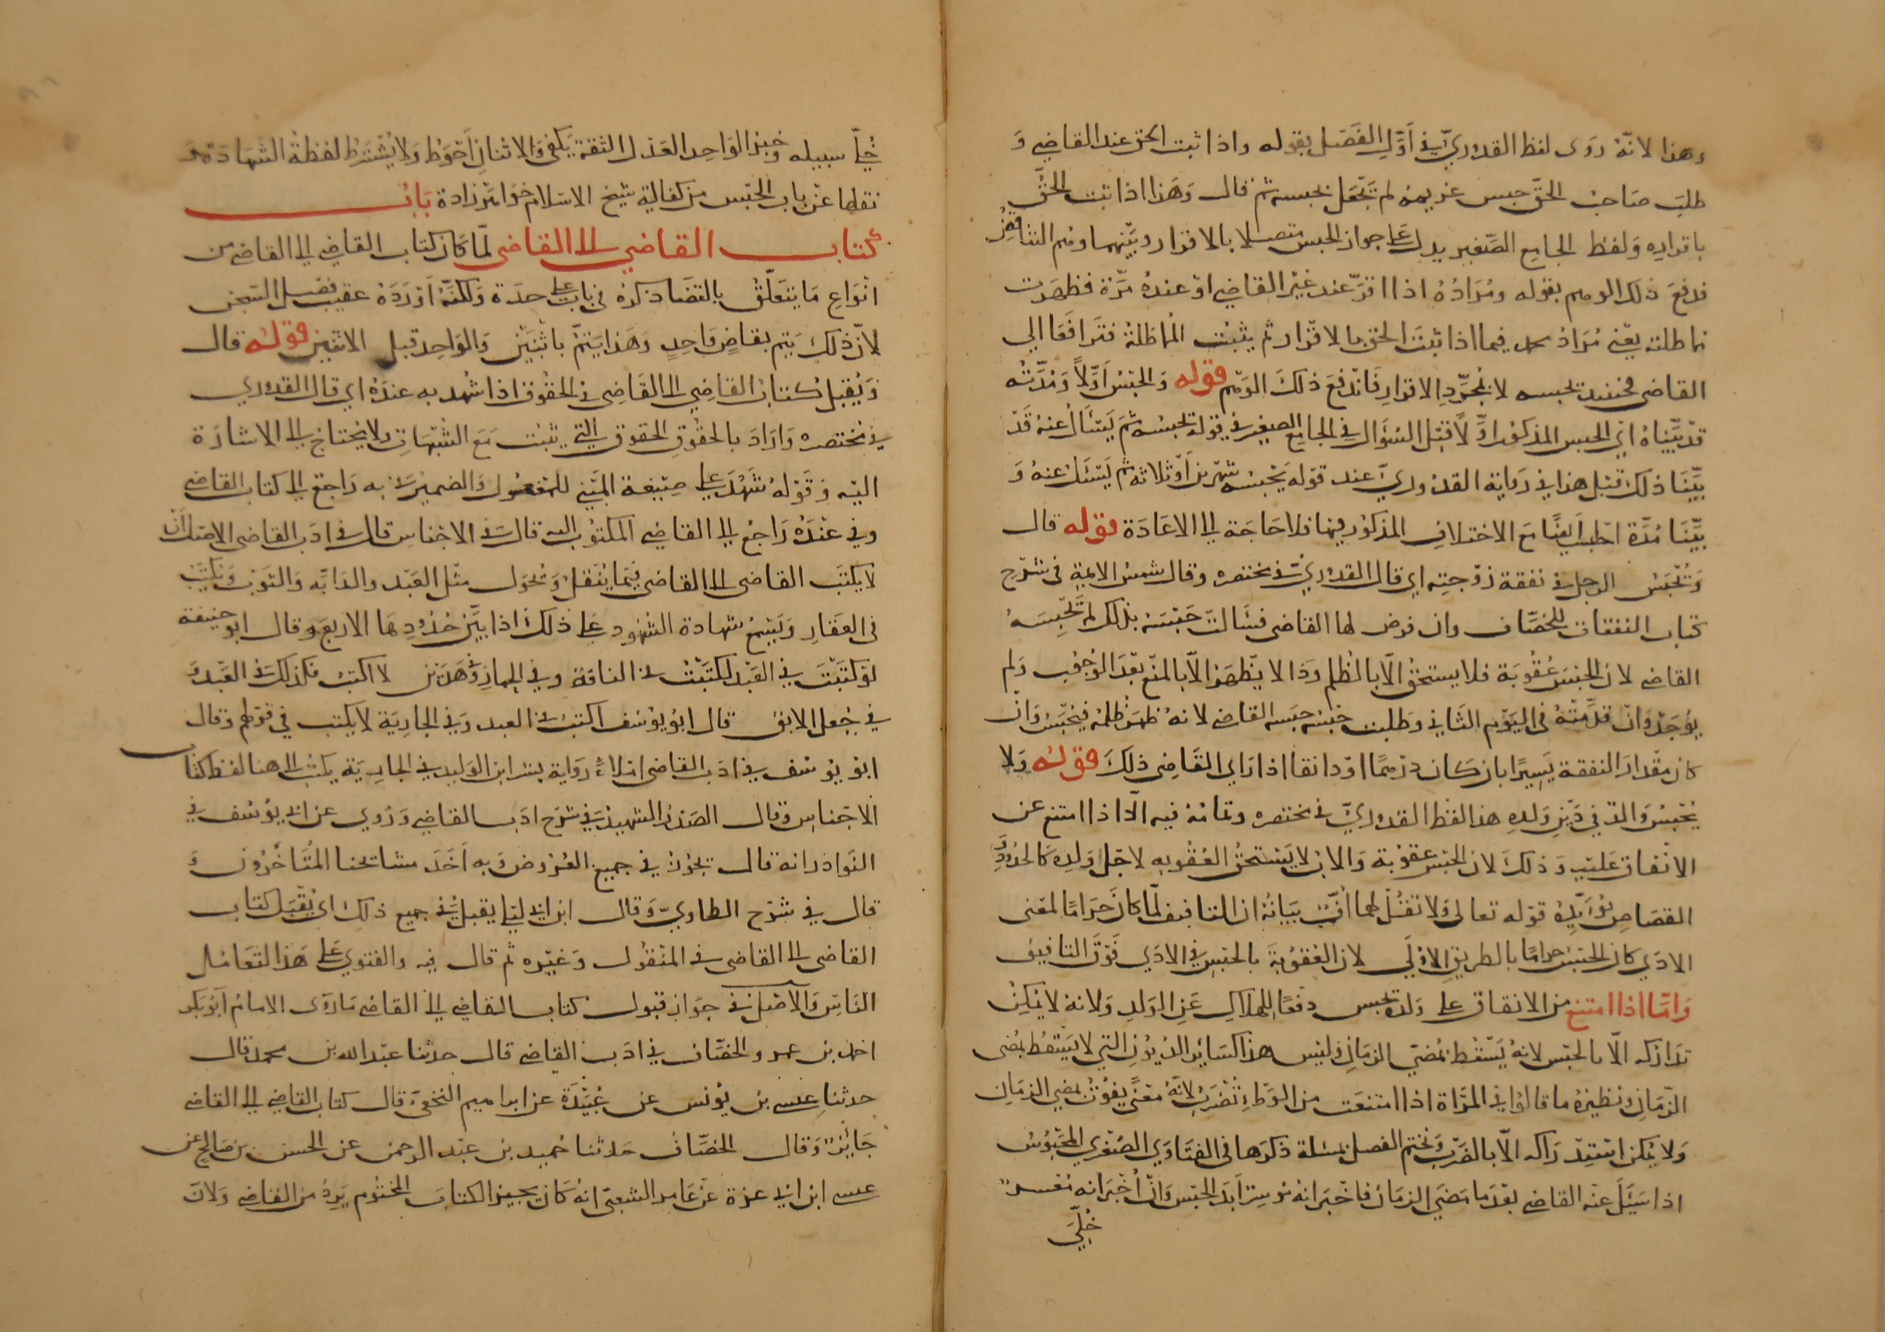 وهذا لانه روى لفظ القدوري في أول الفصل بقوله واذا ثبت الحق عند القاضي و
طلب صاحب الحق حبس غريمه لم تعجل بحبسه ثم قال وهذا اذا ثبت الحق
باقراره ولفظ الجامع الصغير يدل على جواز الحبس متصلا بالاقرار وبينهما وهم التناقض
فدفع ذلك الوهم بقوله ومراده اذا اقر عند غير القاضي او عنده مرة فظهرت
مماطلته يعني مراد محمد فيما اذا ثبت الحق بالاقرار ثم يثبت المماطلة فترافعا الي
القاضي فحينئذ يحبسه لا بمجرد الاقرار فاندفع ذلك الوهم قوله والحبس أولا ومدته
قد بيناه اي الحبس المذكور أولا قبل السؤال في الجامع الصغير في قوله يحبسه ثم يسأل عنه قد
بينا ذلك قبل هذا في رواية القدوري عند قوله يحبسه شهرين أو ثلاثة ثم يسئل عنه و
بينا مدة الحبس ايضا مع الاختلاف المذكور فيها فلا حاجة الى الاعادة قوله قال
ويحبس الرجل في نفقة زوجته اي قال القدوري في مختصره وقال شمس الايمة في شرح
كتاب النفقات للخصاف وان فرض لها القاضي فسألت حبسه بذلك لم يحبسه
القاضي لان الحبس عقوبة فلا يستحق الا بالظلم وذا لا يظهر الا بالمنع بعد الوجوب ولم
يوجد وان قدمته في اليوم الثاني وطلبت حبسه حبسه القاضي لانه ظهر ظلمه فيحبس وان
كان مقدار النفقة يسيرا بان كان درهما او دانقا اذا راي القاضي ذلك قوله ولا
يحبس والد في دين ولده هذا لفظ القدوري في مختصره وتمامه فيه الا اذا امتنع عن
الانفاق عليه وذلك لان الحبس عقوبة والاب لا يستحق العقوبه لاجل ولده كالحدود و
القصاص يؤيده قوله تعالى ولا تقل لهما أف بيانه ان التافيف لما كان حراما لمعنى
الاذي كان الحبس حراما بالطريق الاولي لان العقوبة بالحبس في الاذي فوق التافيف
واما اذا امتنع من الانفاق على ولده يحبس دفعا للهلاك عن الولد ولانه لا يمكن
تداركه الا بالحبس لانه يسقط بمضي الزمان وليس هذا كسائر الديون التي لا يسقط بمضي
الزمان ونظيره ما قالوا في المرأة اذا امتنعت من الوطئ تضرب لانه معنى يفوت بمضي الزمان
ولا يمكن استدراكه الا بالضرب ونختم الفصل بمسئلة ذكرها في الفتاوي الصغري المحبوس
اذا سئل عنه القاضي بعد ما مضي الزمان فاخبر انه موسر أبد الحبس وان اخبر انه معسر
خلي
خلي سبيله وخبر الواحد العدل الثقة يكفي والاثنان أحوط ولا يشترط لفظة الشهادة وقد
نقلها عن باب الحبس من كفالة شيخ الاسلام خواهر زادة باب
كتاب القاضي الى القاضي لما كان كتاب القاضي الى القاضي من
انواع ما يتعلق بالقضا ذكره في باب على حدة ولكنه أورده عقيب فصل السجن
لان ذلك يتم بقاض واحد وهذا يتم باثنين والواحد قبل الاثنين قوله قال
ويقبل كتاب القاضي الى القاضي في الحقوق اذا شهد به عنده اي قال القدوري
في مختصره واراد بالحقوق الحقوق التي يثبت مع الشبهات ولا يحتاج الى الاشارة
اليه وقوله شهد على صيغة المبني للمفعول والضمير في به راجع الى كتاب القاضي
وفي عنده راجع الى القاضي المكتوب اليه قال في الاجناس قال في ادب القاضي الاصل أن
لا يكتب القاضي الى القاضي فيما ينقل ويحول مثل العبد والدابه والثوب ويكتب
في العقار ويسمع شهادة الشهود على ذلك اذا بين حدودها الاربع وقال ابو حنيفة
لو كتبت في العبد لكتبت في الناقة وفي الحمار وفي هذين لا اكتب فكذلك في العبد و
في جعل الابق قال ابو يوسف اكتب في العبد وفي الجارية لا يكتب في قولهم وقال
ابو يوسف في ادب القاضي املاء رواية بشر ابن الوليد في الجارية يكتب الى هنا لفظ كتاب
الاجناس وقال الصدر الشهيد في شرح ادب القاضي وروي عن ابي يوسف في
النوادر انه قال يجوز في جميع العروض وبه أخذ مشائخنا المتأخرون و
قال في شرح الطحاوي وقال ابن ابي ليلي يقبل في جميع ذلك اي يقبل كتاب
القاضي الى القاضي في المنقول وغيره ثم قال فيه والفتوي على هذا لتعامل
الناس والأصل في جواز قبول كتاب القاضي الى القاضي ما روى الامام أبو بكر
احمد بن عمر والخصاف في ادب القاضي قال حدثنا عبد الله بن محمد قال
حدثنا عيسى بن يونس عن عبيدة عن ابراهيم النخعي قال كتاب القاضي الى القاضي
جائز وقال الخصاف حدثنا حميد بن عبد الرحمن عن الحسن بن صالح عن
عيسى ابن ابي عزة عن عامر الشعبي انه كان يجيز الكتاب المختوم يرد من القاضي ولان